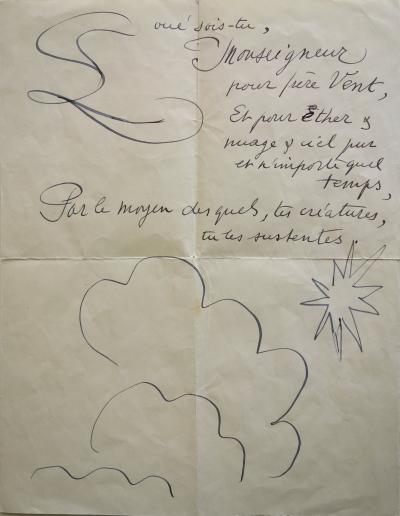 Loué sois-tu,
Monseigneur
pour frère Vent,
Et pour Ether &
nuage & ciel pur
et n'importe quel
temps,
Par le moyen desquels, tes créatures,
tu les sustentes.